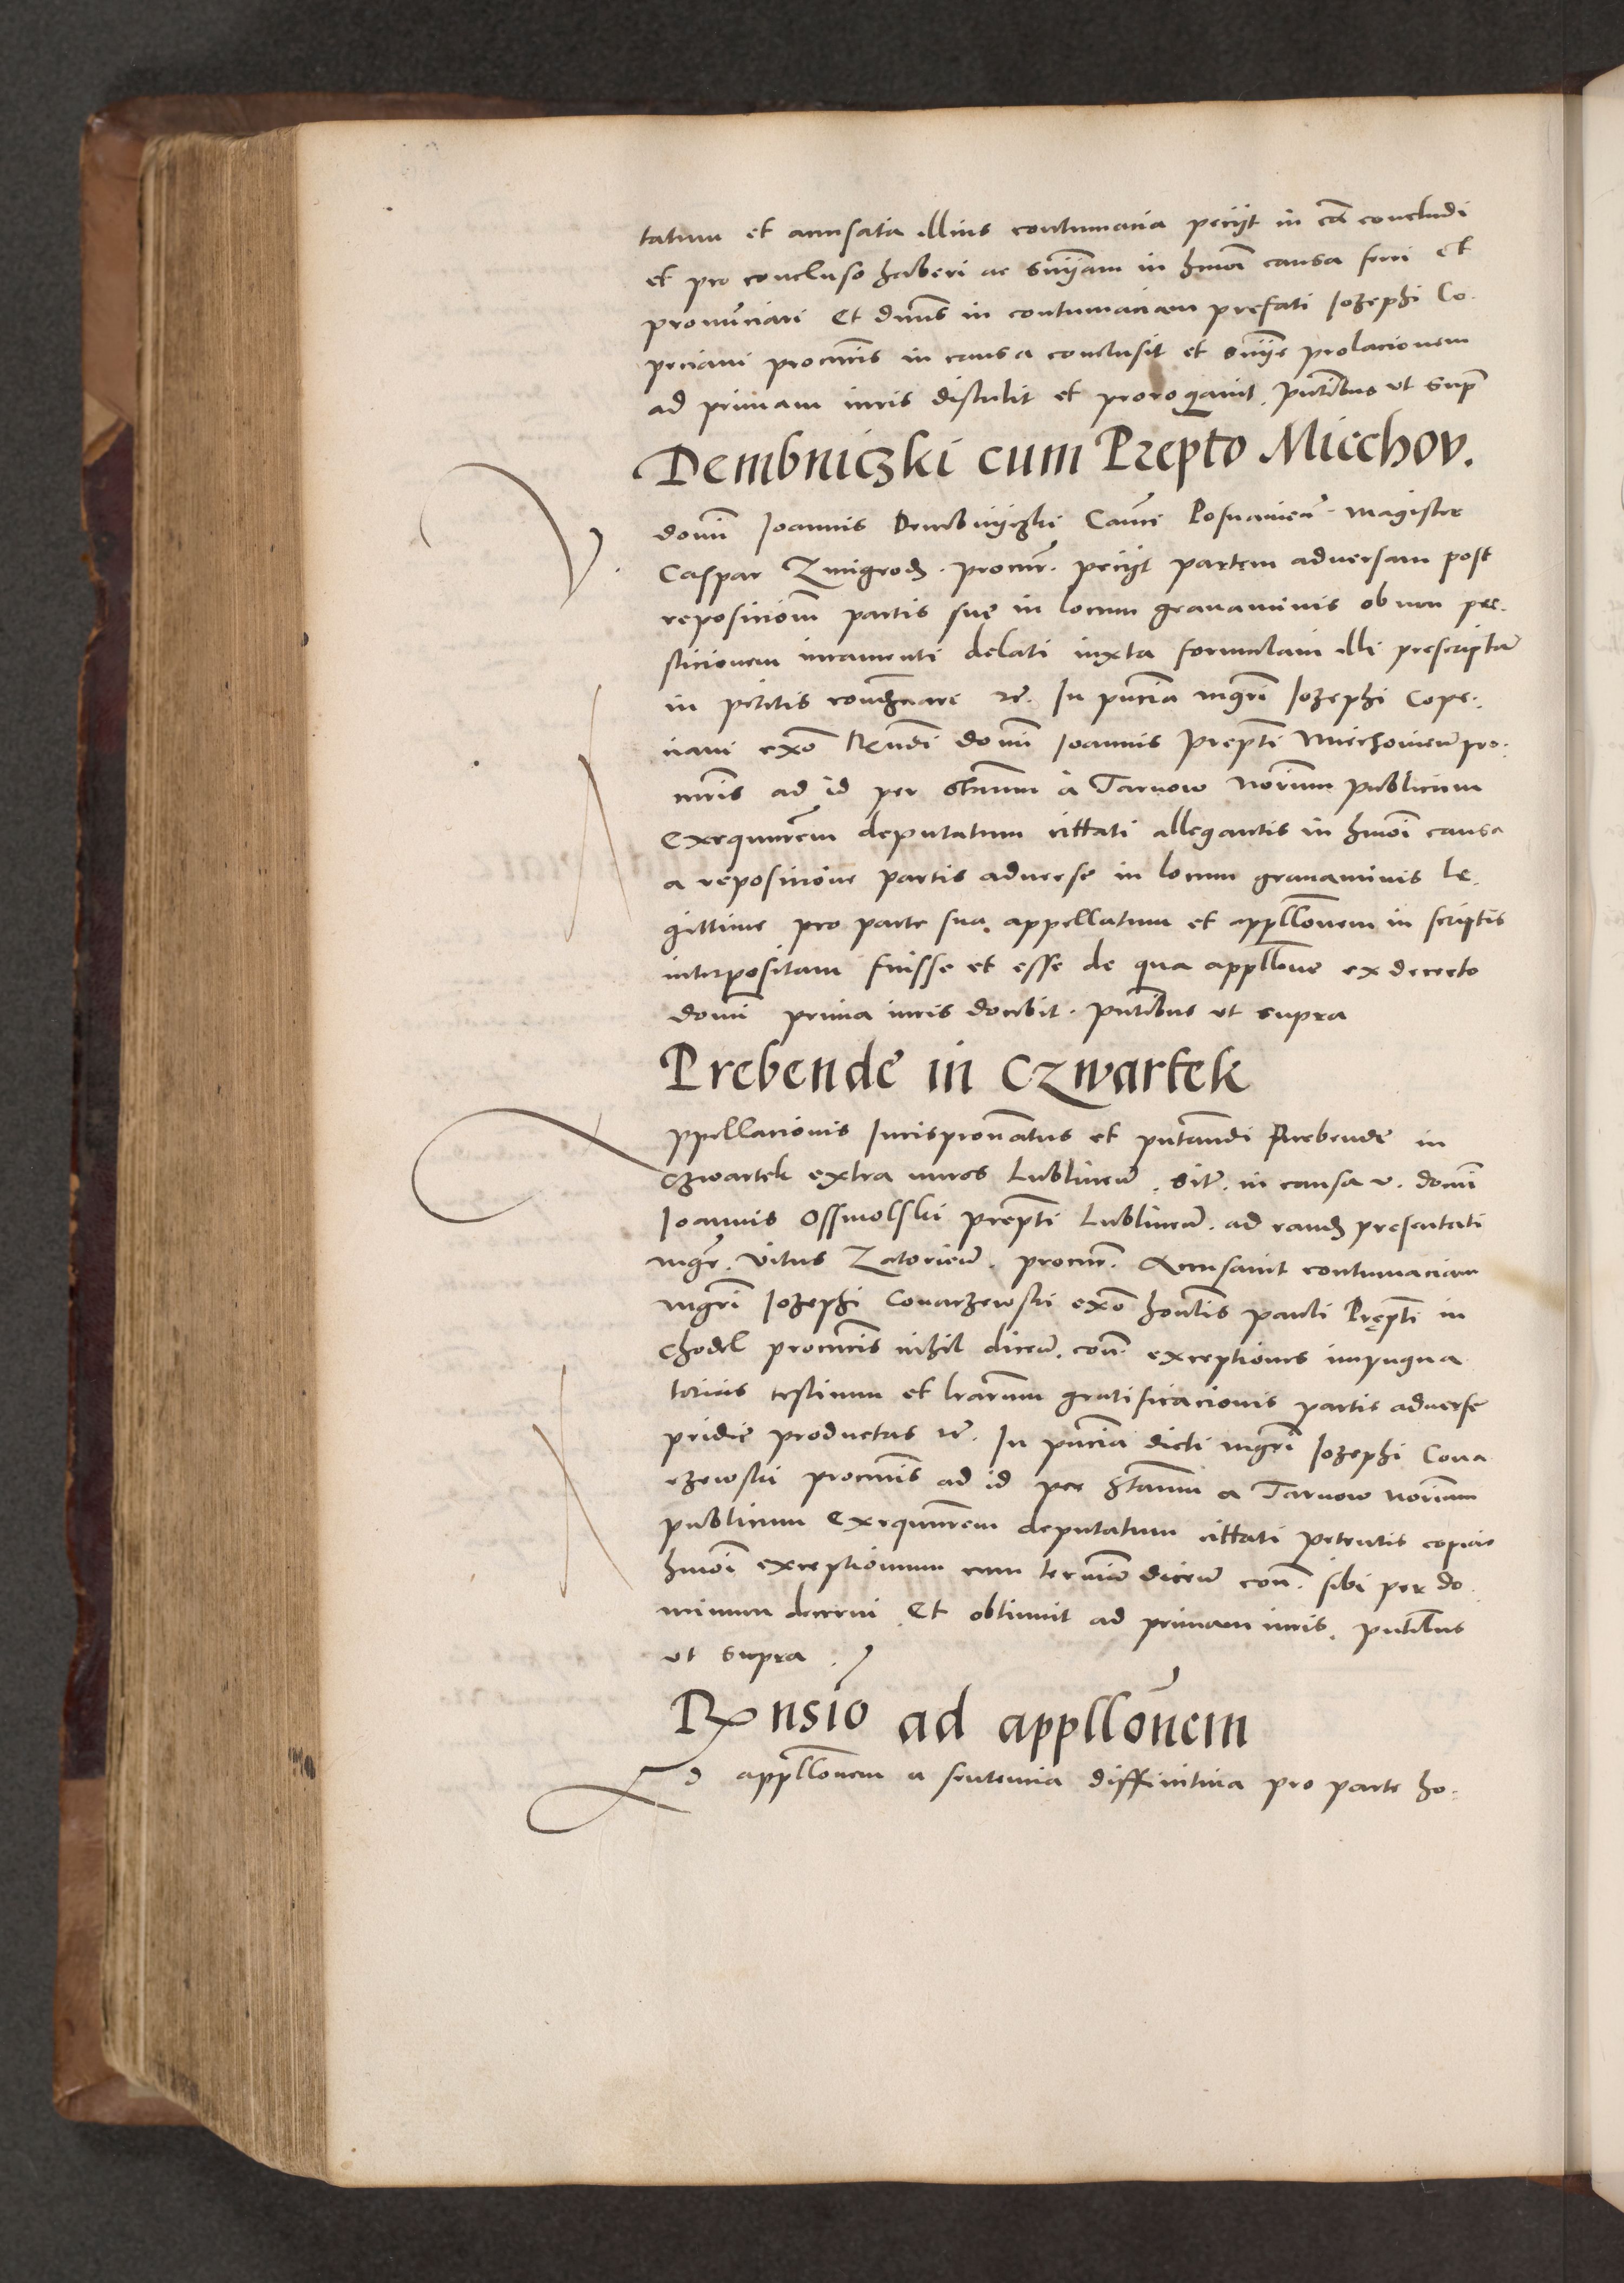 tatum et accusata illius contumacia peciit in cã concludi
et pro concluso haberi ac snĩam in hmõi causa ferri et
pronũciari Et dnus in contumaciam prefati Iozephi Co-
peciani procuris in causa conclusit et snĩe prolacionem
ad primam iuris distulit et prorogauit. Pntibus ut supª
Dembniczki cum Prepto Miechov.
V. domi Ioannis Dembnyczki Canci Posnanien̄ magister
Caspar Zmigrod. procur. peciit partem aduersam post
reposicionem partis suę in locum grauaminis ob non pre-
sticionem iuramenti delati iuxta formulam illi prescriptã
in petitis condemnari etc. In pñcia mgri Iozephi Cope-
ciani exõ Rendi domi Ioannis Prepti Miechouien̄ pro-
curis ad id per Stanm a Tarnow Norium Publicum
Exequutorem deputatum cittati allegantis in hmõi causa
a reposicione partis aduerse in locum grauaminis le-
gittime pro parte sua appellatum et appllonem in scriptis
interpositam fuisse et esse de qua appllone ex decreto
domi prima iuris docebit. Pntibus ut supra
Prebende in Czwartek
Appellacionis Iurispronatus et pntandi Prebende in
Czwartek extra muros Lublinen̄. sitẽ. in causa v. domi
Ioannis Ossmolski prepti Lublinen̄. ad eand presentati
mgr. Vitus Zatorien̄. procur. Accusauit contumaciam
mgri Iozephi Conarzewski exõ hontis Pauli Pręptĩ in
Chodel procuris nihil dicen̄. con̄. exceptiones impugna
torias testium et lrarum gratificacionis partis aduerse
pridie productas etc. In pñcia dicti mgri Iozephi Cona
rzewski procuris ad id per Stanm a Tarnow Norium
publicum Exequutorem deputatum cittati petentis copias
hmõi exceptionum cum termino dicen̄ con̄. sibi per do-
minum decerni Et obtinuit ad primam iuris. pntibus
ut supra.
Rnsio ad appllonem
Ad appllonem a sentencia diffinitiua pro parte ho-